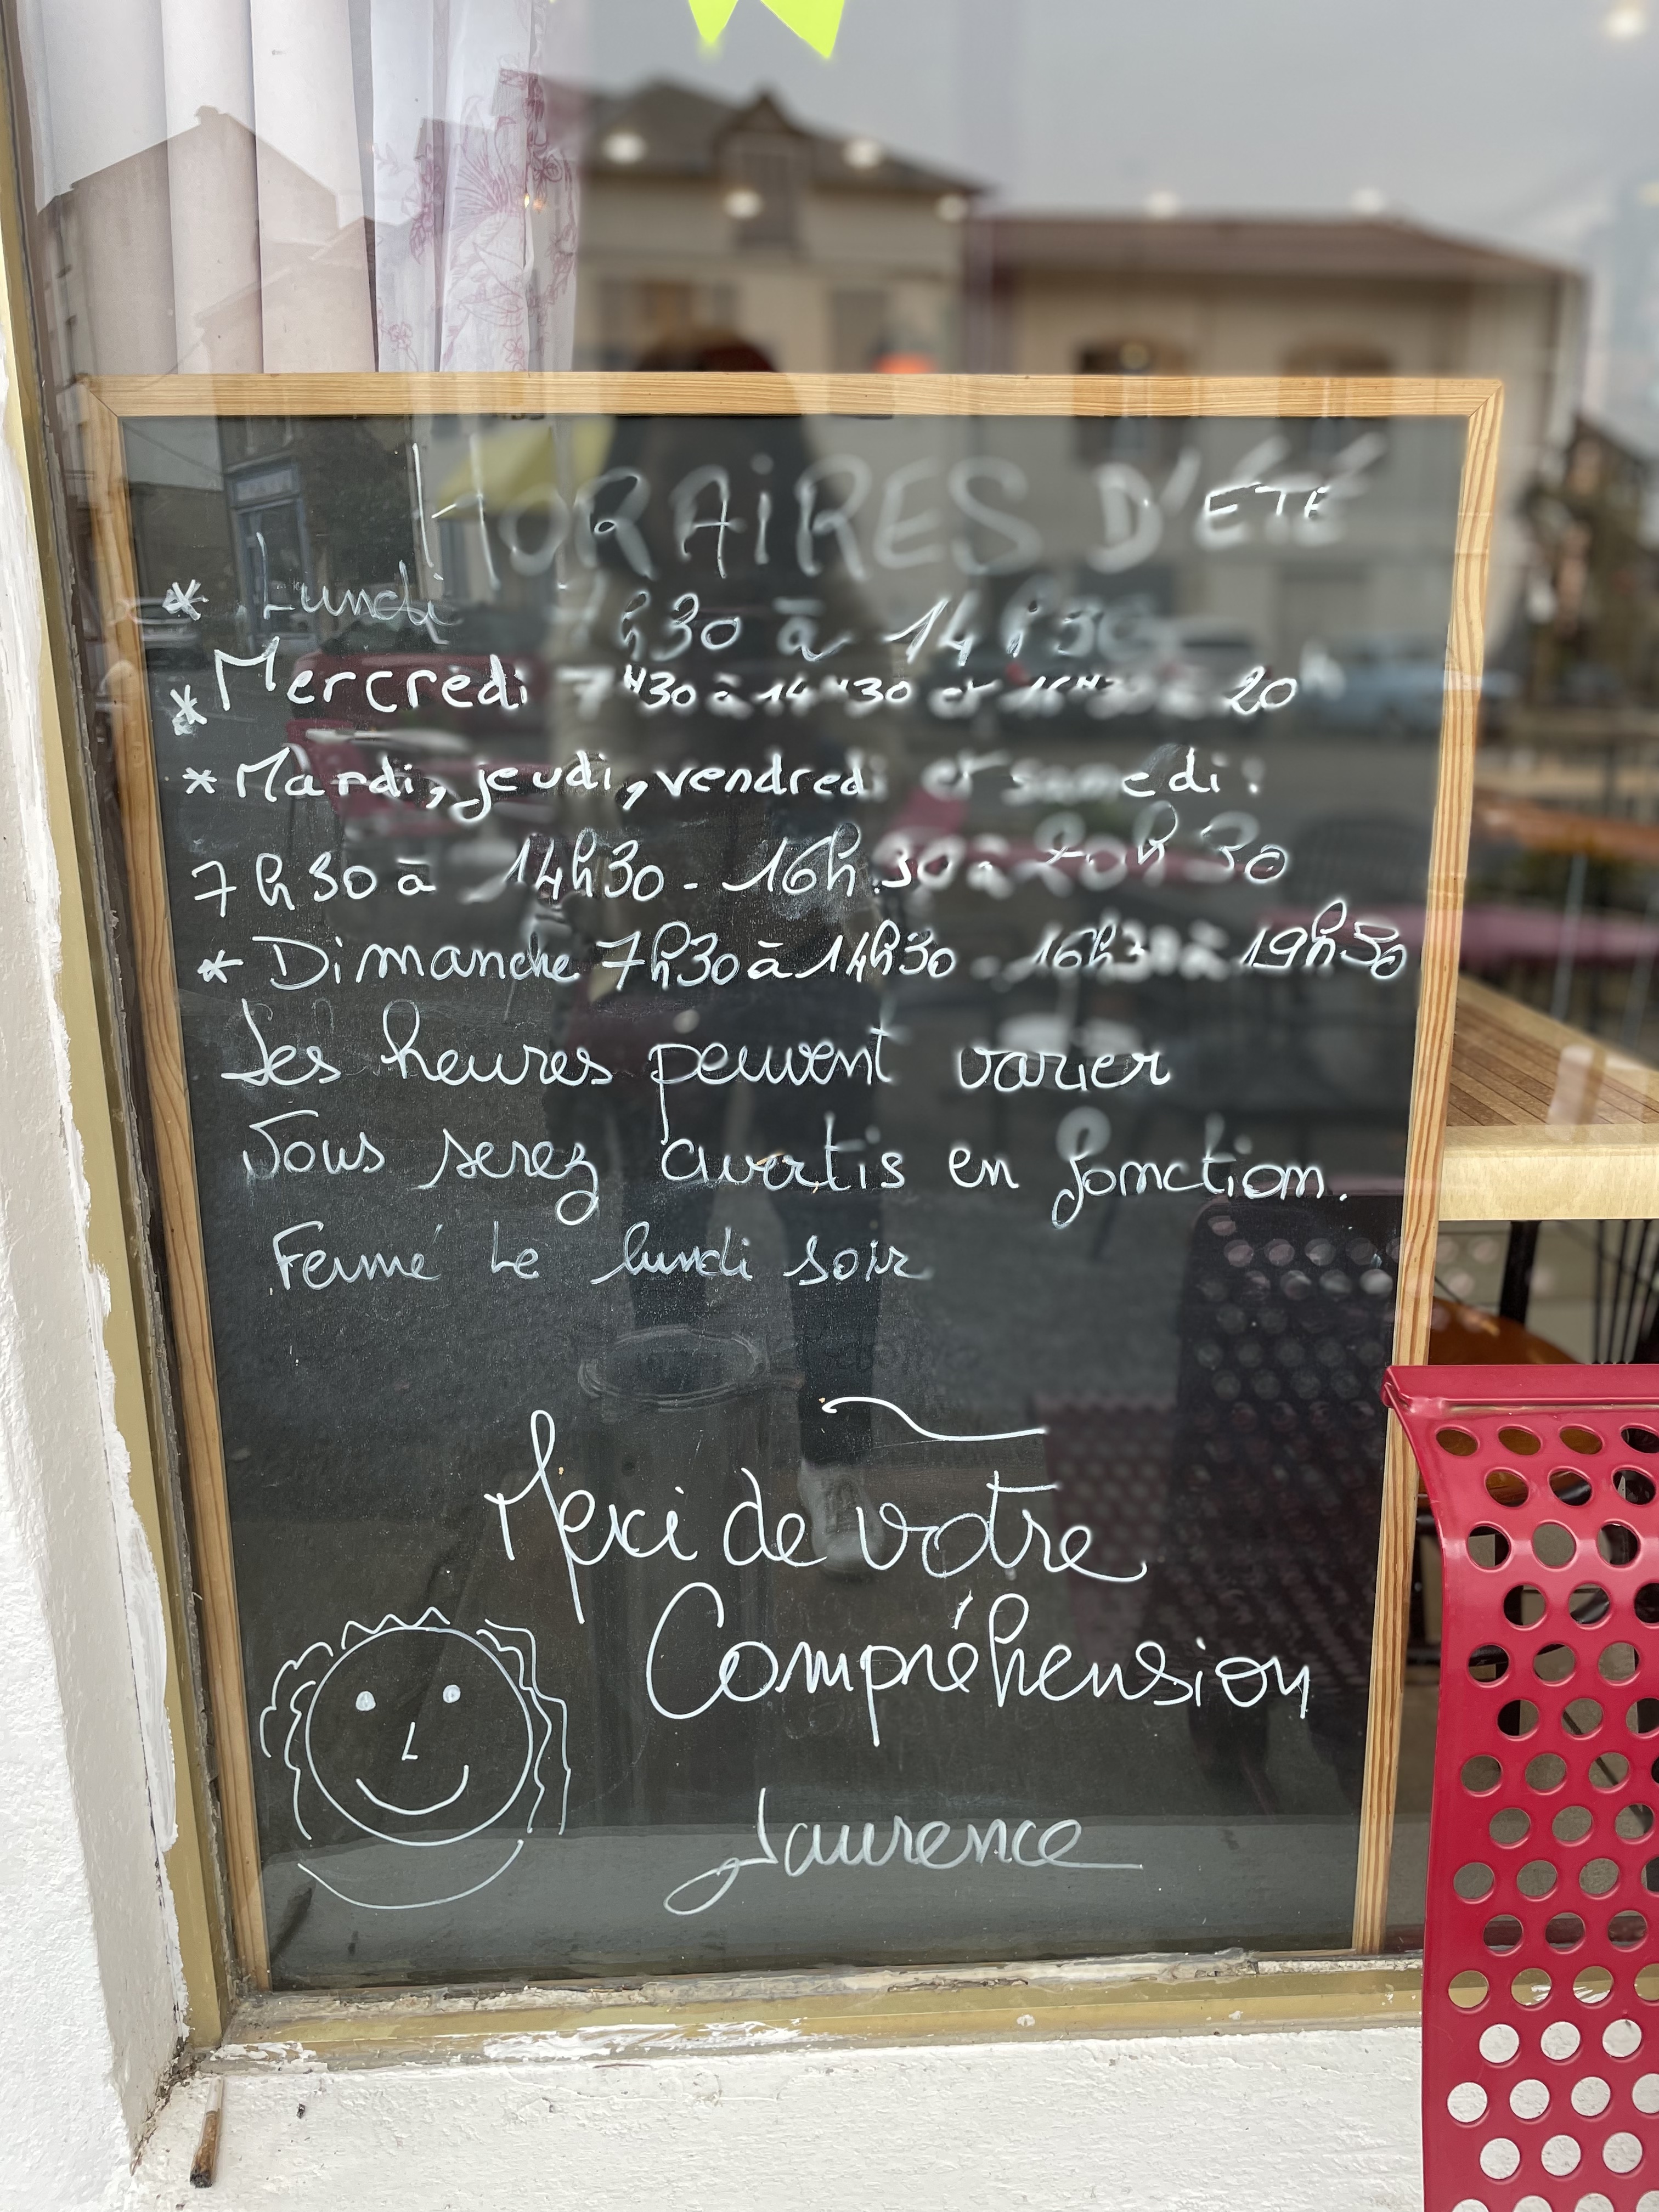 HORAIRES D'ÉTÉ
* Lundi 7h30 à 14h30
* Mercredi 7H30 à 14H30 et 16H30 à 20h
* Mardi, jeudi, vendredi et samedi :
7h30 à 14h30 - 16h30 à 20h30
* Dimanche 7h30 à 14h30 - 16h30 à 19h30
Les heures peuvent varier
Vous serez avertis en fonction.
Fermé Le lundi soir
Merci de votre
Compréhension
Laurence